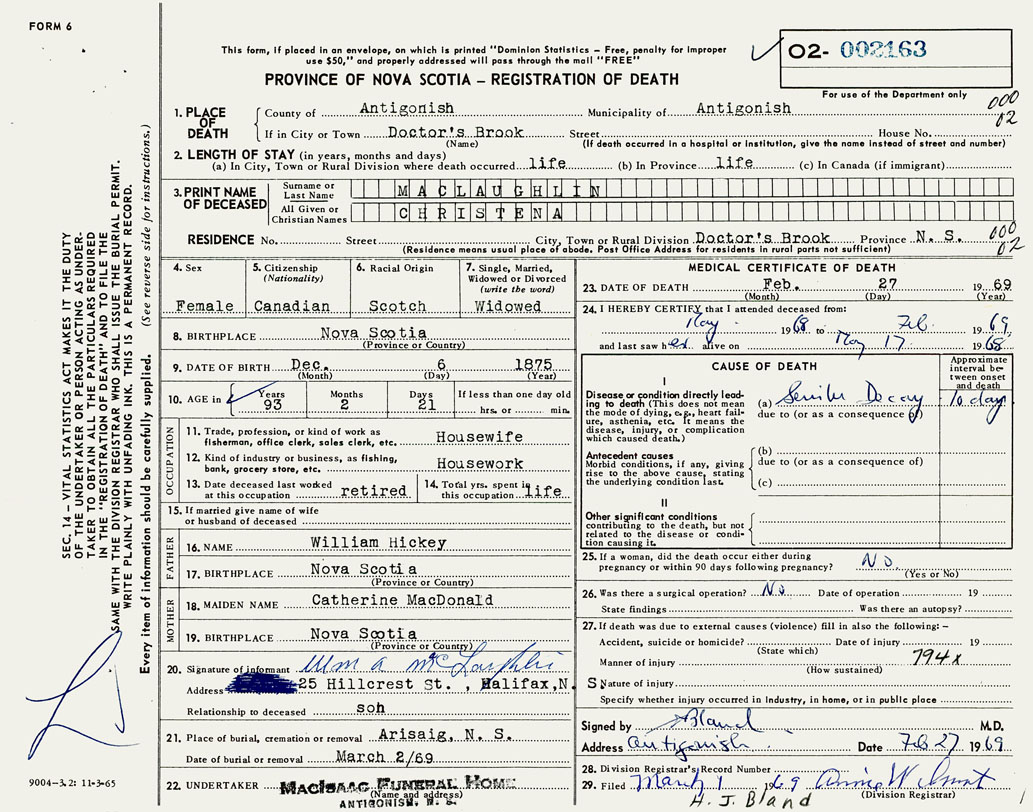 FORM 6
This form, if placed in an envelope, on which is printed "Dominion Statistics – Free, penalty for improper
use $50," and properly addressed will pass through the mail "FREE"
PROVINCE OF NOVA SCOTIA – REGISTRATION OF DEATH
O2- 002163
For use of the Department only
000
02
1. PLACE OF DEATH
County of Antigonish Municipality of Antigonish
If in City or Town Doctor's Brook Street House No.
(Name) (If death occurred in a hospital or institution, give the name instead of street and number)
2. LENGTH OF STAY (in years, months and days)
(a) In City, Town or Rural Division where death occurred life (b) In Province life (c) In Canada (if immigrant)
3. PRINT NAME OF DECEASED
Surname or Last Name MACLAUGHLIN
All Given or Christian Names CHRISTENA
RESIDENCE No. Street City, Town or Rural Division Doctor's Brook Province N. S.
000
02
(Residence means usual place of abode. Post Office Address for residents in rural parts not sufficient)
4. Sex
Female
5. Citizenship
(Nationality)
Canadian
6. Racial Origin
Scotch
7. Single, Married,
Widowed or Divorced
(write the word)
Widowed
8. BIRTHPLACE Nova Scotia
(Province or Country)
9. DATE OF BIRTH Dec. 6 1875
(Month) (Day) (Year)
10. AGE in
Years Months Days If less than one day old
93 2 21 hrs. or min.
OCCUPATION
11. Trade, profession, or kind of work as
fisherman, office clerk, sales clerk, etc. Housewife
12. Kind of industry or business, as fishing,
bank, grocery store, etc. Housework
13. Date deceased last worked
at this occupation retired
14. Total yrs. spent in
this occupation life
15. If married give name of wife
or husband of deceased
FATHER
16. NAME William Hickey
17. BIRTHPLACE Nova Scotia
(Province or Country)
MOTHER
18. MAIDEN NAME Catherine MacDonald
19. BIRTHPLACE Nova Scotia
(Province or Country)
20. Signature of informant Wm A McLaughlin
Address 25 Hillcrest St. , Halifax,N. S
Relationship to deceased son
21. Place of burial, cremation or removal Arisaig, N. S.
Date of burial or removal March 2/69
22. UNDERTAKER MacIsaac Funeral Home
(Name and address)
ANTIGONISH, N. S.
MEDICAL CERTIFICATE OF DEATH
23. DATE OF DEATH Feb. 27 1969
(Month) (Day) (Year)
24. I HEREBY CERTIFY that I attended deceased from:
May 1968 to Feb 1969
and last saw her alive on May 17 1968
CAUSE OF DEATH
Approximate
interval be-
tween onset
and death
I
Disease or condition directly lead-
ing to death (This does not mean
the mode of dying, e.g., heart fail-
ure, asthenia, etc. It means the
disease, injury, or complication
which caused death.)
(a) Senile Decay 10 days
due to (or as a consequence of)
Antecedent causes
Morbid conditions, if any, giving
rise to the above cause, stating
the underlying condition last.
(b)
due to (or as a consequence of)
(c)
II
Other significant conditions
contributing to the death, but not
related to the disease or condi-
tion causing it.
25. If a woman, did the death occur either during
pregnancy or within 90 days following pregnancy? No
(Yes or No)
26. Was there a surgical operation? No Date of operation 19
State findings Was there an autopsy?
27. If death was due to external causes (violence) fill in also the following:–
Accident, suicide or homicide? Date of injury 19
(State which)
Manner of injury 794x
(How sustained)
Nature of injury
Specify whether injury occurred in industry, in home, or in public place
Signed by Bland M.D.
Address Antigonish Date Feb 27 1969
28. Division Registrar's Record Number
29. Filed March 1 1969
(Division Registrar)
H. J. Bland
SEC. 14 – VITAL STATISTICS ACT MAKES IT THE DUTY
OF THE UNDERTAKER OR PERSON ACTING AS UNDER-
TAKER TO OBTAIN ALL THE PARTICULARS REQUIRED
IN THE "REGISTRATION OF DEATH" AND TO FILE THE
SAME WITH THE DIVISION REGISTRAR WHO SHALL ISSUE THE BURIAL PERMIT.
WRITE PLAINLY WITH UNFADING INK. THIS IS A PERMANENT RECORD.
Every item of information should be carefully supplied. (See reverse side for instructions.)
9004–3.2: 11-3-65